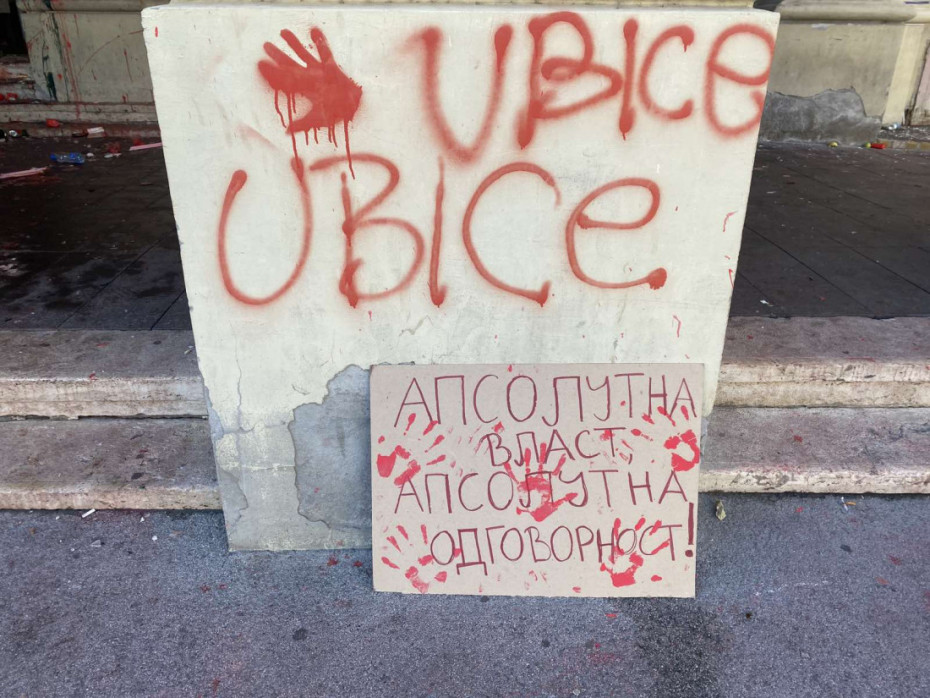 UBICe
UBICe
АПСОЛУТНА
ВЛАСТ
АПСОЛУТНА
ОДГОВОРНОСТ!